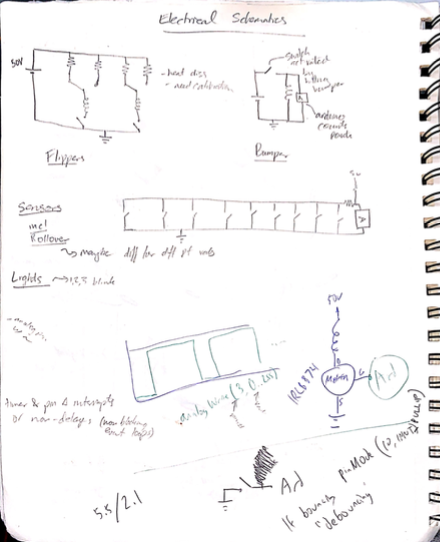 Electrical Schematics
50V
- heat diss
- need calibration
switch
activated
by
hitting
bumper
arduino
counts
points
Flippers
Bumper
Sensors
incl
Rollover
maybe diff for diff pt vals
A
Lights → 1,2,3 blink
50V
IRL8374
Motion
Ard
analogWrite(3, 0..255)
timer & pin Δ interrupts
or non-delays (non blocking
event loops)
5.5/2.1
Ard
pinMode(10, INPUT_PULLUP)
If bouncing
"debouncing"